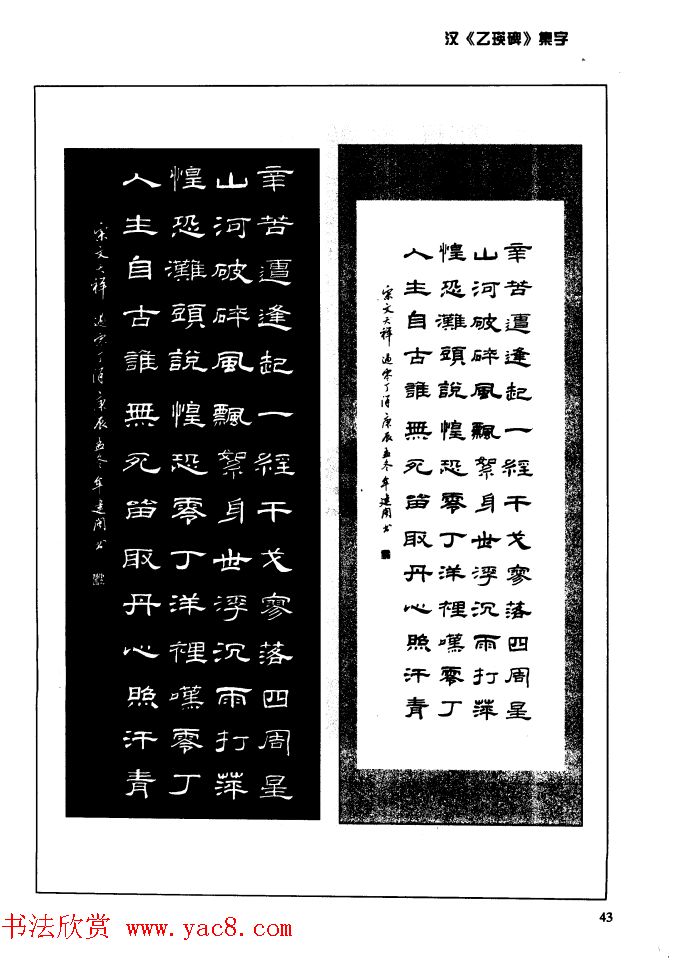 汉《乙瑛碑》集字
辛苦遭逢起一經干戈寥落四周星
山河破碎風飄絮身世浮沉雨打萍
惶恐灘頭說惶恐零丁洋裡嘆零丁
人生自古誰無死留取丹心照汗青
宋文天祥 過零丁洋 庚辰孟冬 建 书
辛苦遭逢起一經干戈寥落四周星
山河破碎風飄絮身世浮沉雨打萍
惶恐灘頭說惶恐零丁洋裡嘆零丁
人生自古誰無死留取丹心照汗青
宋文天祥 過零丁洋 庚辰孟冬 建 书
43
书法欣赏 www.yac8.com